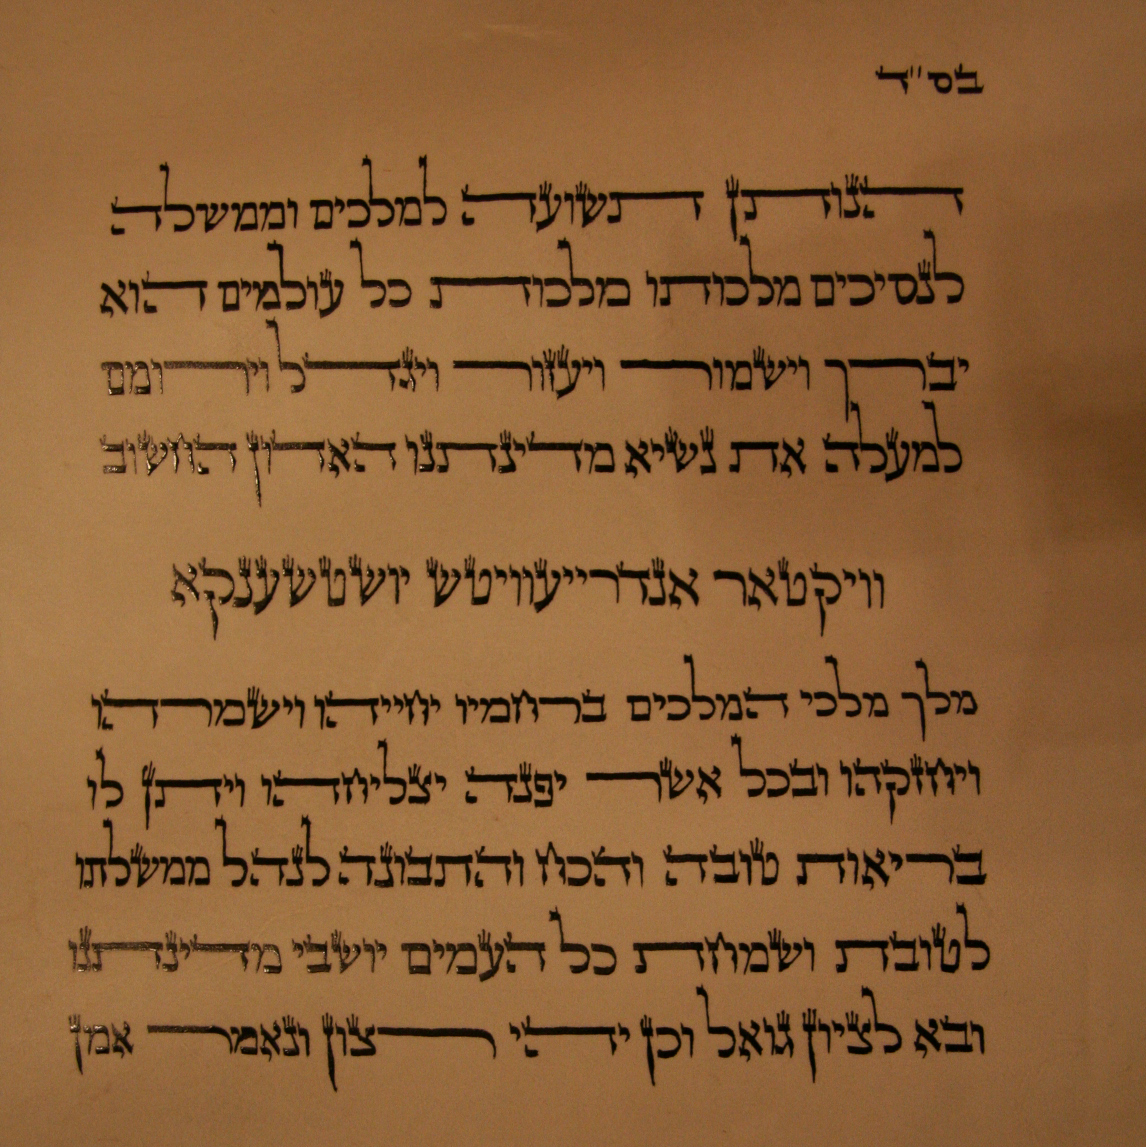 בס"ד
הנותן תשועה למלכים וממשלה
לנסיכים מלכותו מלכות כל עולמים הוא
יברך וישמור ויעזור ויגדל וירומם
למעלה את נשיא מדינתנו האדון החשוב
וויקטאר אנדרייעוויטש יושטשענקא
מלך מלכי המלכים ברחמיו יחייהו וישמרהו
ויחזקהו ובכל אשר יפנה יצליחהו ויתן לו
בריאות טובה והכוח והתבונה לנהל ממשלתו
לטובת ושמחת כל העמים יושבי מדינתנו
ובא לציון גואל וכן יהי רצון ונאמר אמן